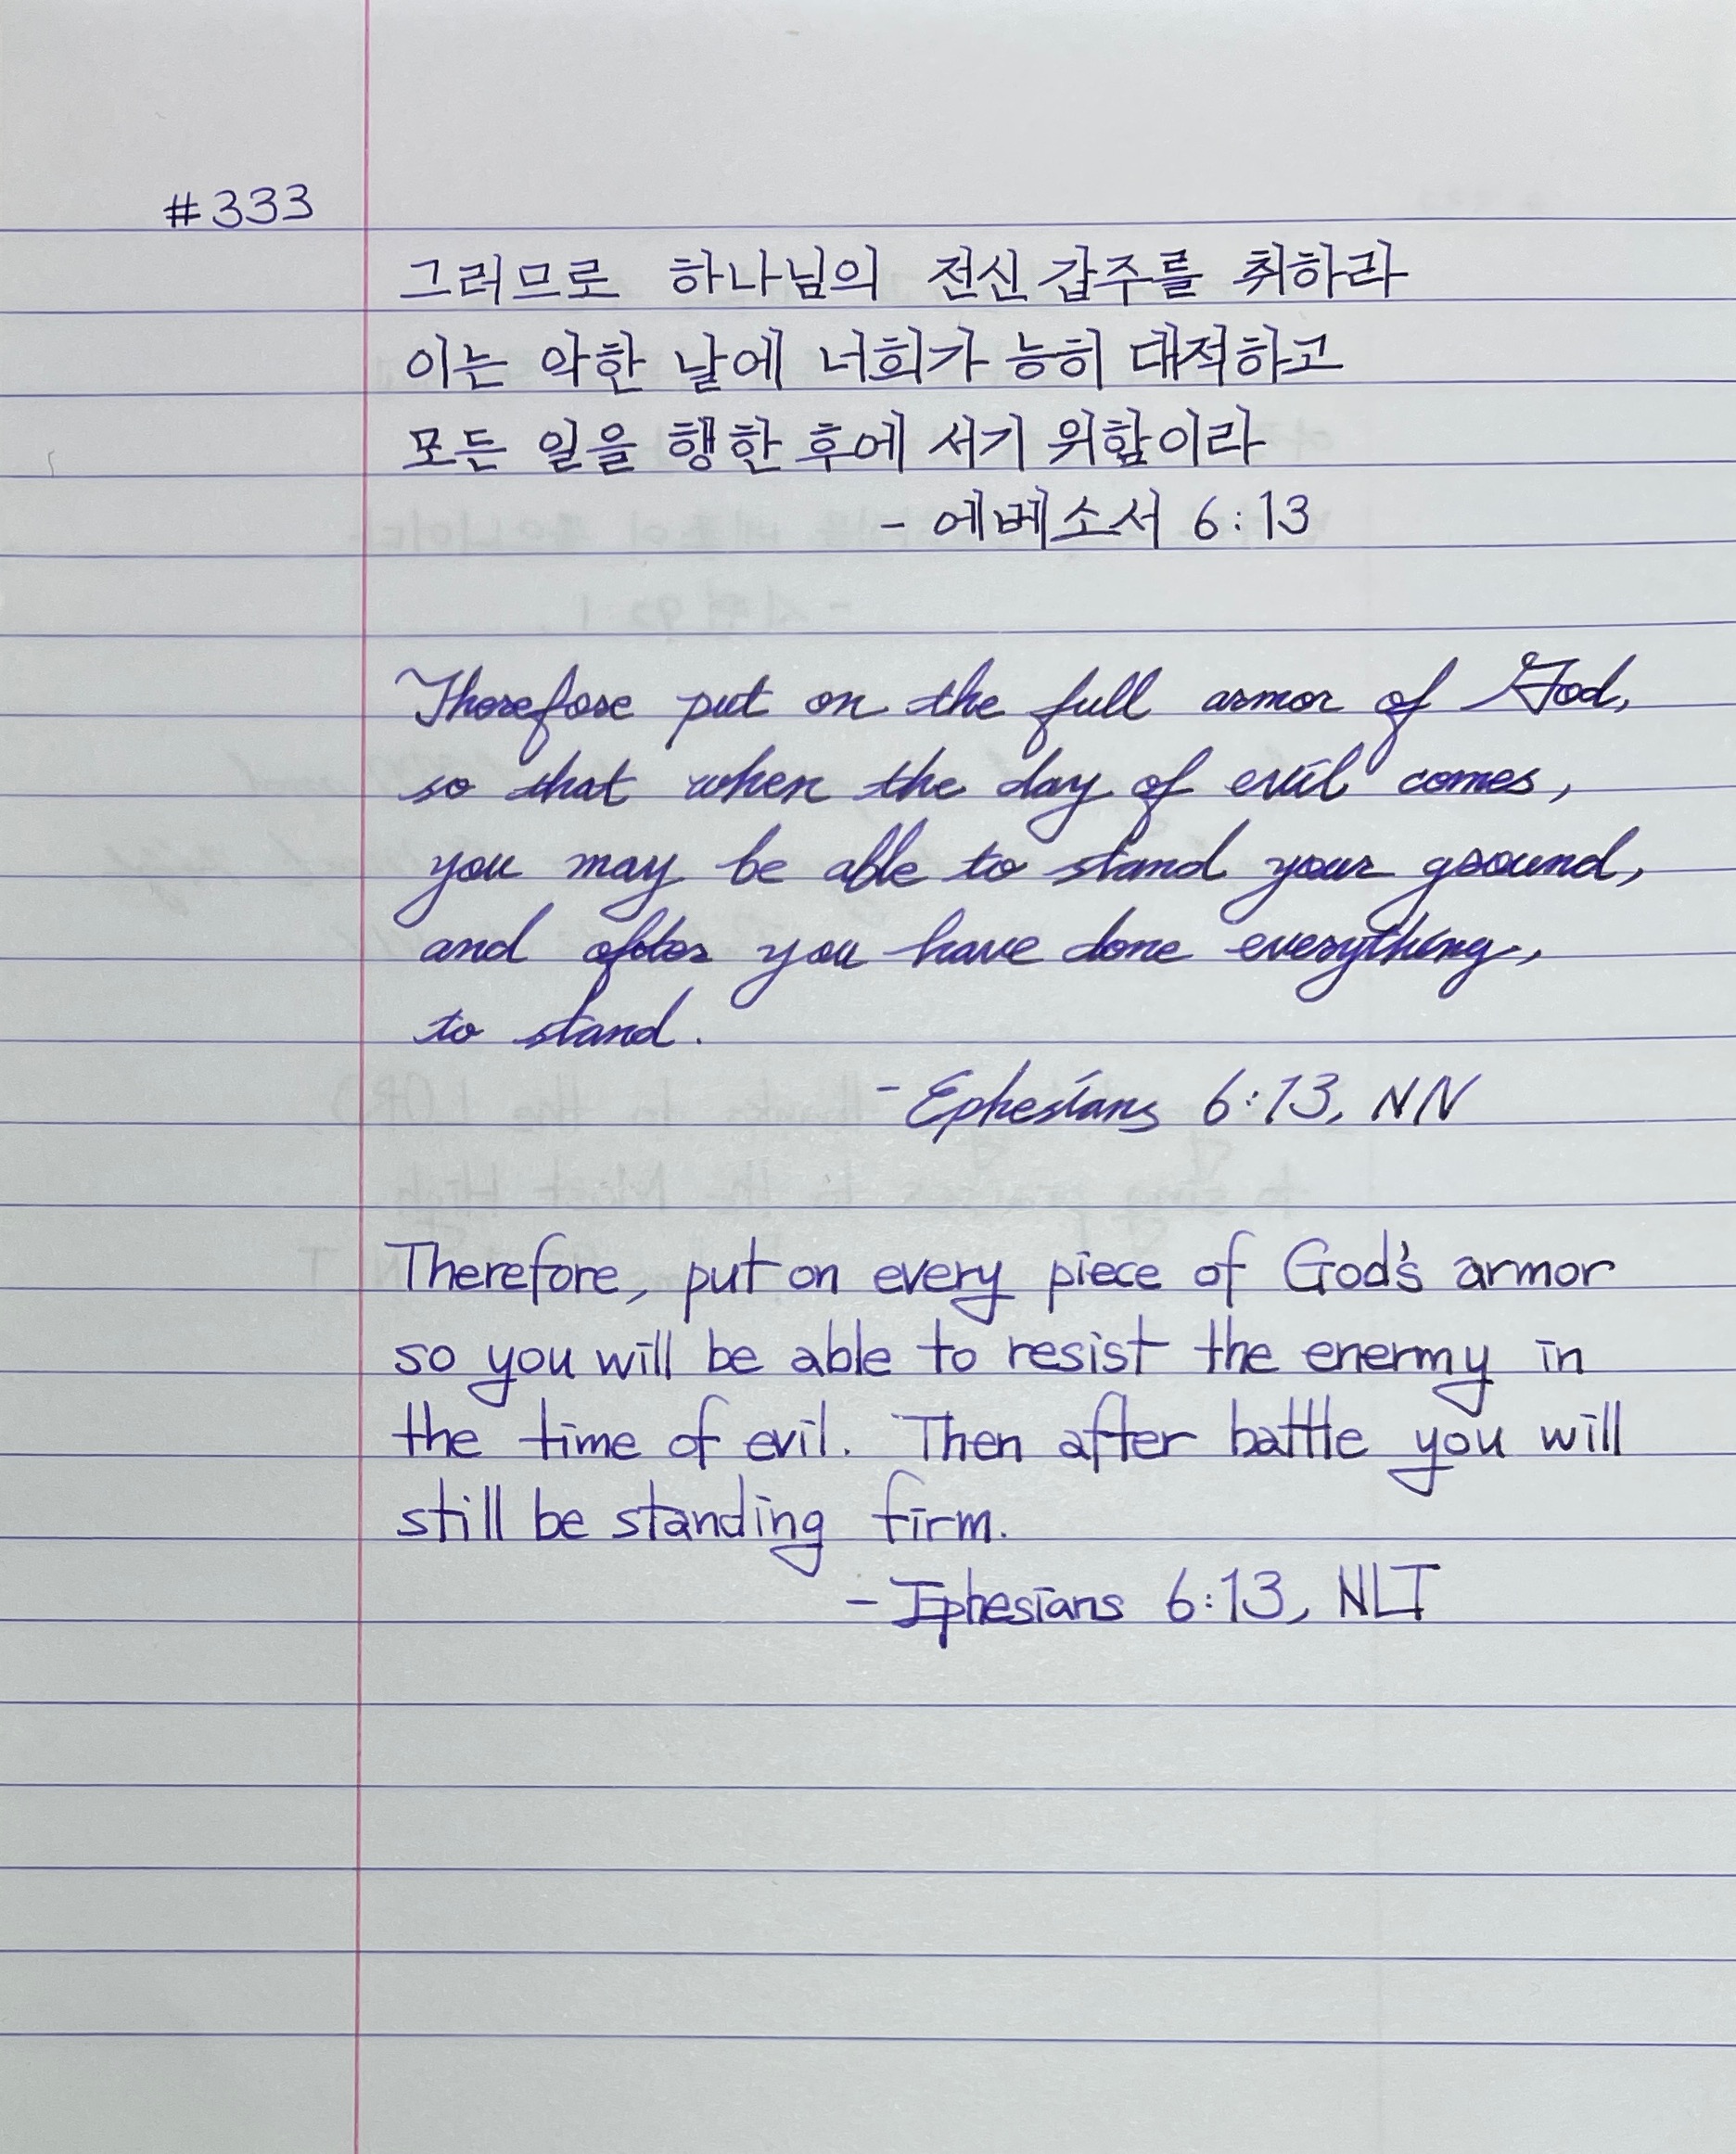 #333
그러므로 하나님의 전신 갑주를 취하라
이는 악한 날에 너희가 능히 대적하고
모든 일을 행한 후에 서기 위함이라
- 에베소서 6:13
Therefore put on the full armor of God,
so that when the day of evil comes,
you may be able to stand your ground,
and after you have done everything,
to stand.
- Ephesians 6:13, NIV
Therefore, put on every piece of God's armor
so you will be able to resist the enermy in
the time of evil. Then after battle you will
still be standing firm.
- Ephesians 6:13, NLT